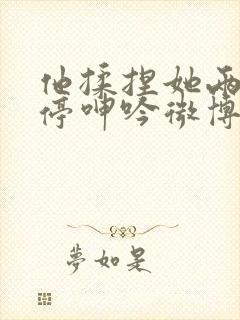 他揉捏她两
停呻吟微博
夢如是